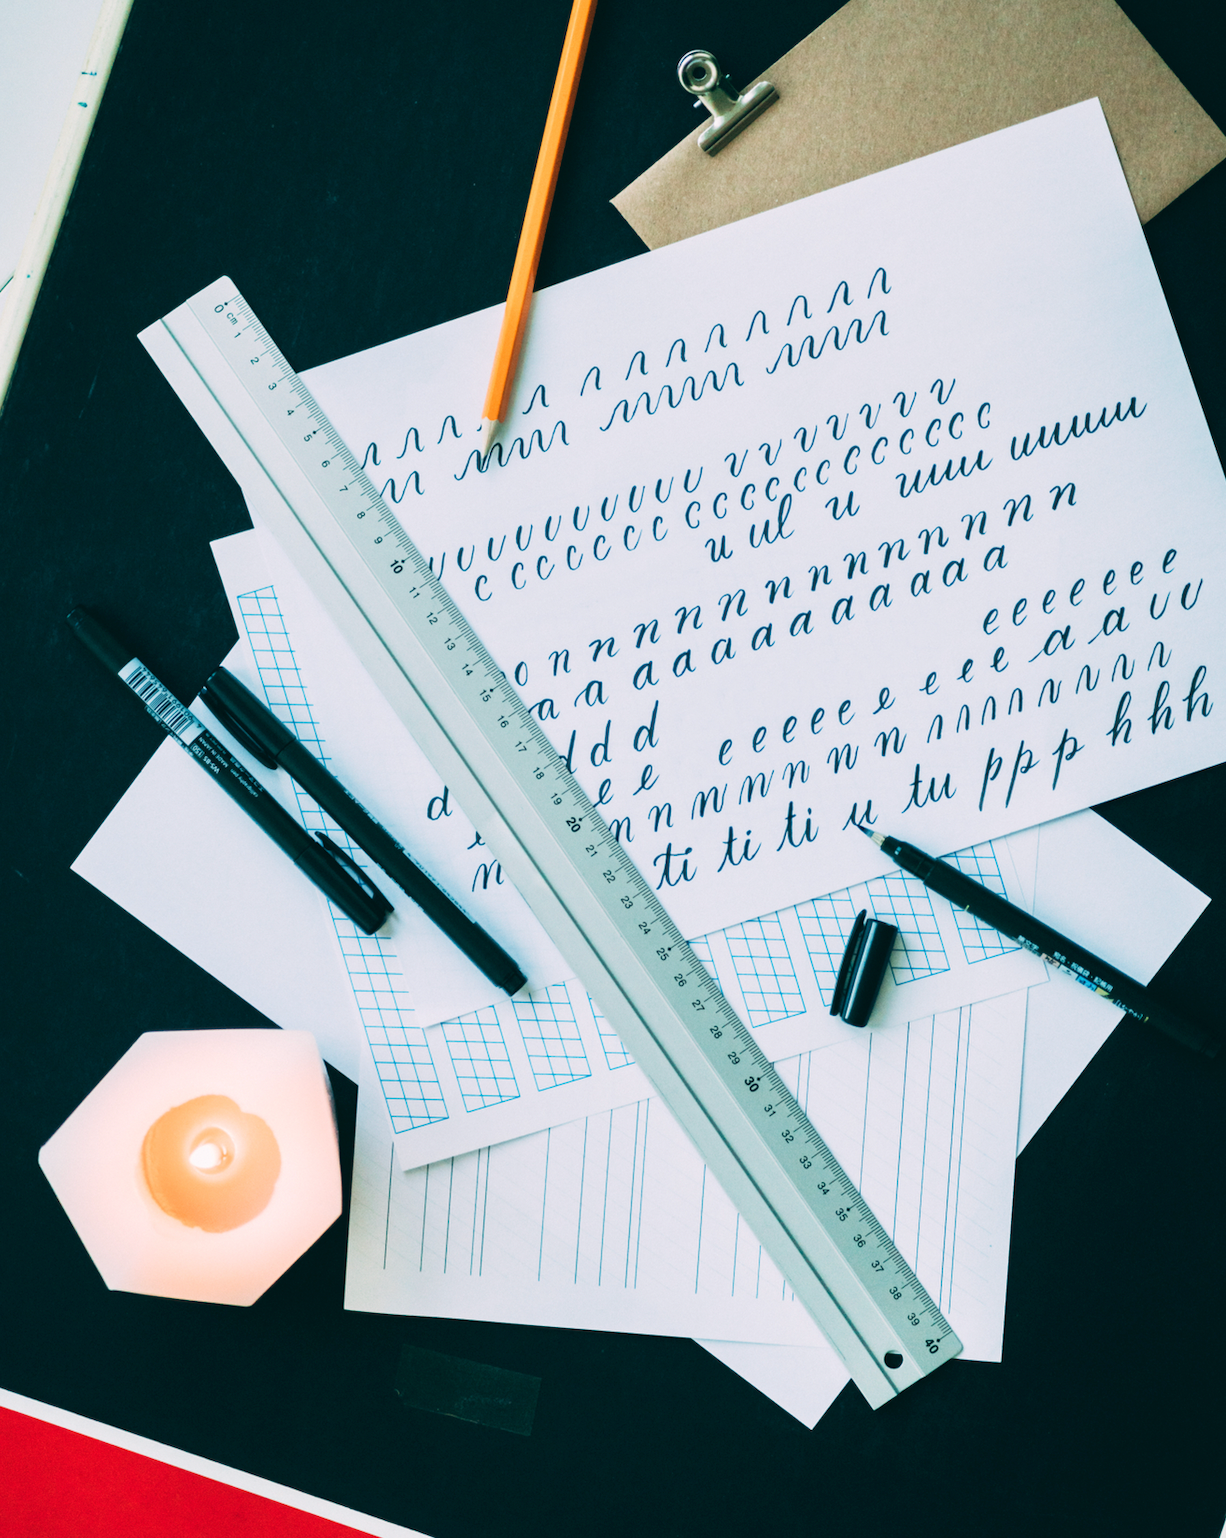 0 cm 1 2 3 4 5 6 7 8 9 10 11 12 13 14 15 16 17 18 19 20 21 22 23 24 25 26 27 28 29 30 31 32 33 34 35 36 37 38 39 40
v v v v v v v v v v v v v v v v v
c c c c c c c c c c c c c c c c c c c
u ul u uuu uuuuu
o n n n n n n n n n n n n n
a a a a a a a a a a a a
d d d d e e e e e e e
e e e e e e e e e e e e a a v v
n n n n n n n n
ti ti ti u tu p p p h h h
WS-BS 150
MADE IN JAPAN